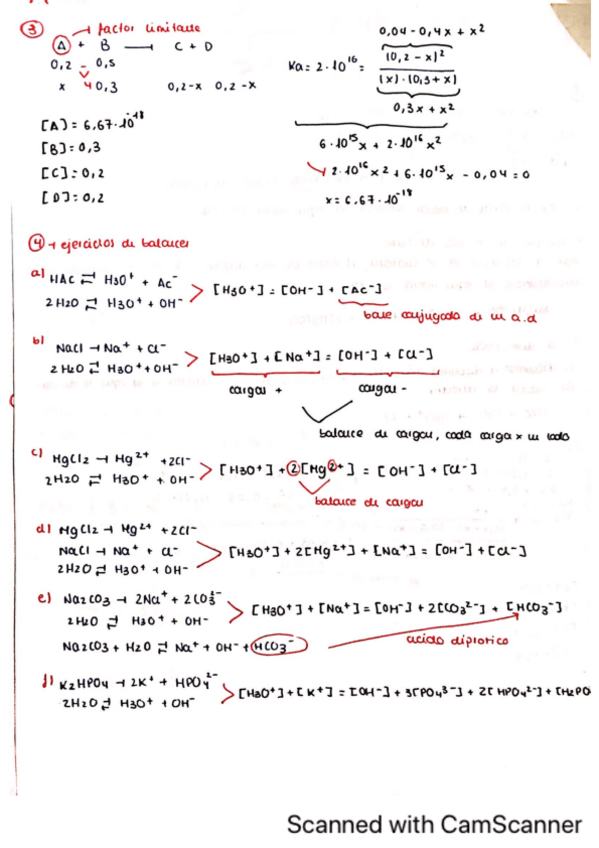 ③ → factor limitante
A + B → C + D
0,2 - 0,5
x 0,3 0,2-x 0,2-x
[A] = 6,67·10⁻¹⁸
[B] = 0,3
[C] = 0,2
[D] = 0,2
0,04 - 0,4x + x²
Ka = 2·10¹⁶ = (0,2-x)² / (x)·(0,3+x)
0,3x + x²
6·10¹⁵x + 2·10¹⁶x²
2·10¹⁶x² + 6·10¹⁵x - 0,04 = 0
x = 6,67·10⁻¹⁸
④ → ejercicios de balances
a) HAc ⇄ H3O⁺ + Ac⁻
2H2O ⇄ H3O⁺ + OH⁻ > [H3O⁺] = [OH⁻] + [Ac⁻]
base conjugada di un a.d
b) NaCl → Na⁺ + Cl⁻
2H2O ⇄ H3O⁺ + OH⁻ > [H3O⁺] + [Na⁺] = [OH⁻] + [Cl⁻]
cargas + cargas -
balance de cargas, cada carga x un lado
c) HgCl2 → Hg²⁺ + 2Cl⁻
2H2O ⇄ H3O⁺ + OH⁻ > [H3O⁺] + 2[Hg²⁺] = [OH⁻] + [Cl⁻]
balance de cargas
d) MgCl2 → Mg²⁺ + 2Cl⁻
NaCl → Na⁺ + Cl⁻
2H2O ⇄ H3O⁺ + OH⁻ > [H3O⁺] + 2[Mg²⁺] + [Na⁺] = [OH⁻] + [Cl⁻]
e) Na2CO3 → 2Na⁺ + 2CO3²⁻
2H2O ⇄ H3O⁺ + OH⁻ > [H3O⁺] + [Na⁺] = [OH⁻] + 2[CO3²⁻] + [HCO3⁻]
Na2CO3 + H2O ⇄ Na⁺ + OH⁻ + HCO3⁻ acido diprotico
f) K2HPO4 → 2K⁺ + HPO4²⁻
2H2O ⇄ H3O⁺ + OH⁻ > [H3O⁺] + [K⁺] = [OH⁻] + 3[PO4³⁻] + 2[HPO4²⁻] + [H2PO
Scanned with CamScanner